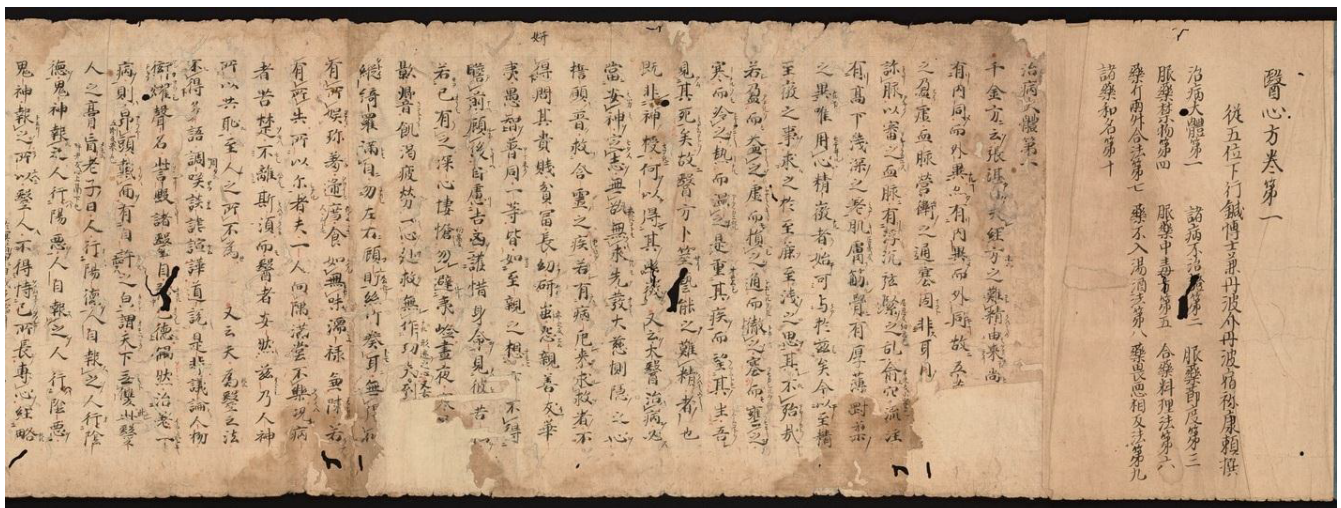 醫心方卷第一
從五位下行鍼博士兼丹波介丹波宿祢康頼撰
治病大體第一 諸病不治證第二 服藥節度第三
服藥禁物第四 服藥中毒方第五 合藥料理法第六
藥斤兩升合法第七 藥不入湯酒法第八 藥畏惡相反法第九
諸藥和名第十
治病大體第一
千金方云張湛曰夫經方之難精由來尚
有内同而外異亦有内異而外同故五
之盈虚血脉營衛之通塞固非耳目
診脉以審之血脉有浮沉弦緊之乱俞穴流注
有高下淺深之差肌膚筋骨有厚薄剛柔
之異唯用心精微者始可与於茲矣今以至精
至微之事求之於至麁至淺之思其不殆哉
若盈而益之虚而損之通而徹之塞而壅之
寒而冷之熱而温之是重其疾而望其生吾
見其死矣故醫方卜筮藝能之難精者也
既非神授何以得其幽微 又云大醫治病必
當安神定志無欲無求先發大慈惻隱之心
誓願普救含靈之疾若有病厄來求救者不
妍
得問其貴賤貧冨長幼研蚩怨親善友華
夷愚智普同一等皆如至親之想 不得
瞻前顧後自慮吉凶護惜身命見彼苦
若已有之深心悽愴勿避嶮 晝夜寒
飢渴疲勞一心赴救無作功夫形
綺羅滿目勿左右顧眄絲竹湊耳無
有所娯珎羞 食如無味 禄 陳若
有所以尓者夫一人向隅滿堂不樂況病
者苦楚不離斯須而醫者安然 茲乃人神
所以共恥至人之所不爲 又云夫爲醫之法
不得多語調咲談謔諠譁道説是非議論人物
衒燿聲名訾毀諸醫自 德偶然治差一
病則昂頭戴面有自許之白謂天下無雙此醫
人之膏肓老子曰人行陽德人自報之人行陰
德鬼神報之人行陽惡人自報之人行陰惡
鬼神報之所以醫人不得恃己所長專心經略